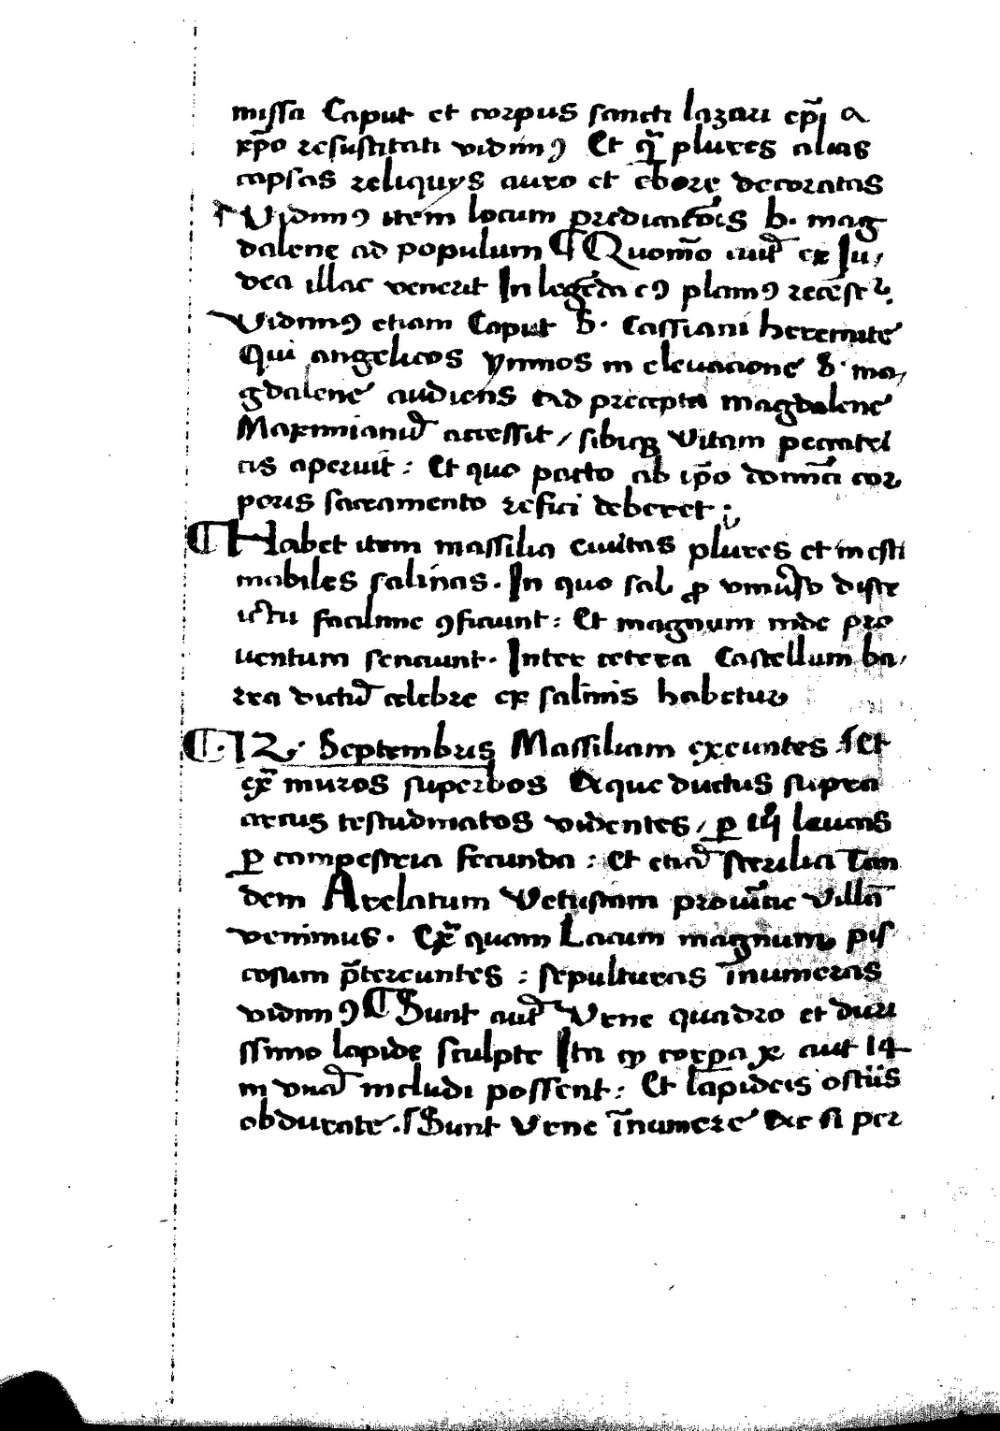 missa Caput et corpus sancti lazari ep̃i a
xp̃o resuscitati vidimꝰ Et qᷓ plures alias
capsas reliquijs auro et ebore decoratas
Vidimꝰ item locum predicatõis b. mag
dalene ad populum ¶ Quomõ aut̃ ex Ju/
dea illac venerit In legẽda eꝰ planiꝰ recẽset᷑.
Vidimꝰ etiam Caput S. Cassiani heremite
Qui angelicos ymnos in elevacione S. ma/
gdalene audiens Ad precepta magdalene
Maximianũ accessit / sibiqꝫ vitam peccatri
cis aperuit : Et quo pacto ab ip̃o dominĩ cor
poris sacramento refici deberet ;
¶ Habet item massilia civitas plures et inesti
mabiles salinas . In quo sal ꝓ vniũso distr
ictu facilime ꝯficiunt : Et magnum inde pro
ventum senciunt . Inter cetera Castellum ba/
rra dictũ celebre ex salinis habetur
¶ . 12 . Septembris Massiliam exeuntes Et
ex̃ muros superbos Aque ductus supra
arcus testudinatos videntes / ꝑ iiij leucas
ꝑ campestria fecunda : Et etiã sterilia Tan
dem Arelatum Vetustam provĩcie villã
venimus . Ex̃ quam Lacum magnum pis
cosum p̃tereuntes : sepulturas ĩnumeras
vidimꝰ ¶ Sunt aut̃ Vene quadro et duri
ssimo lapide sculpte Ita ꝙ corpora x aut 14
in vnã includi possent : Et lapideis ostiis
obdurate . Sunt Vene ĩnumere Ac si per